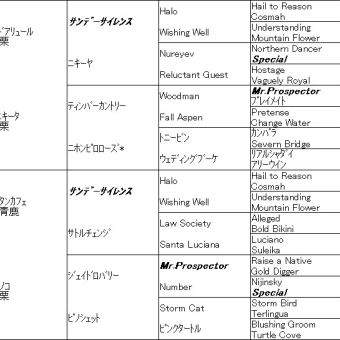 ｻﾝﾃﾞｰｻｲﾚﾝｽ
Halo
Hail to Reason
Cosmah
Wishing Well
Understanding
Mountain Flower
ﾄﾞｱﾘｭｰﾙ
栗
ﾆｷｰﾔ
Nureyev
Northern Dancer
Special
Reluctant Guest
Hostage
Vaguely Royal
ﾃｨﾝﾊﾞｰｶﾝﾄﾘｰ
Woodman
Mr.Prospector
ﾌﾟﾚｲﾒｲﾄ
Fall Aspen
Pretense
Change Water
ｷｰﾀ
栗
ﾆﾎﾝﾋﾟﾛﾛｰｽﾞ*
ﾄﾆｰﾋﾞﾝ
ｶﾝﾊﾟﾗ
Severn Bridge
ｳｪﾃﾞｨﾝｸﾞﾌﾞｰｹ
ﾘｱﾙｼｬﾀﾞｲ
ｱﾘｰｳｲﾝ
ｻﾝﾃﾞｰｻｲﾚﾝｽ
Halo
Hail to Reason
Cosmah
Wishing Well
Understanding
Mountain Flower
ﾀﾝｶﾌｪ
青鹿
ｻﾄﾙﾁｪﾝｼﾞ
Law Society
Alleged
Bold Bikini
Santa Luciana
Luciano
Suleika
ｼﾞｪｲﾄﾞﾛﾊﾞﾘｰ
Mr.Prospector
Raise a Native
Gold Digger
Number
Nijinsky
Special
ﾉｺ
栗
ﾋﾟﾉｼｪｯﾄ
Storm Cat
Storm Bird
Terlingua
ﾋﾟﾝｸﾀｰﾄﾙ
Blushing Groom
Turtle Cove